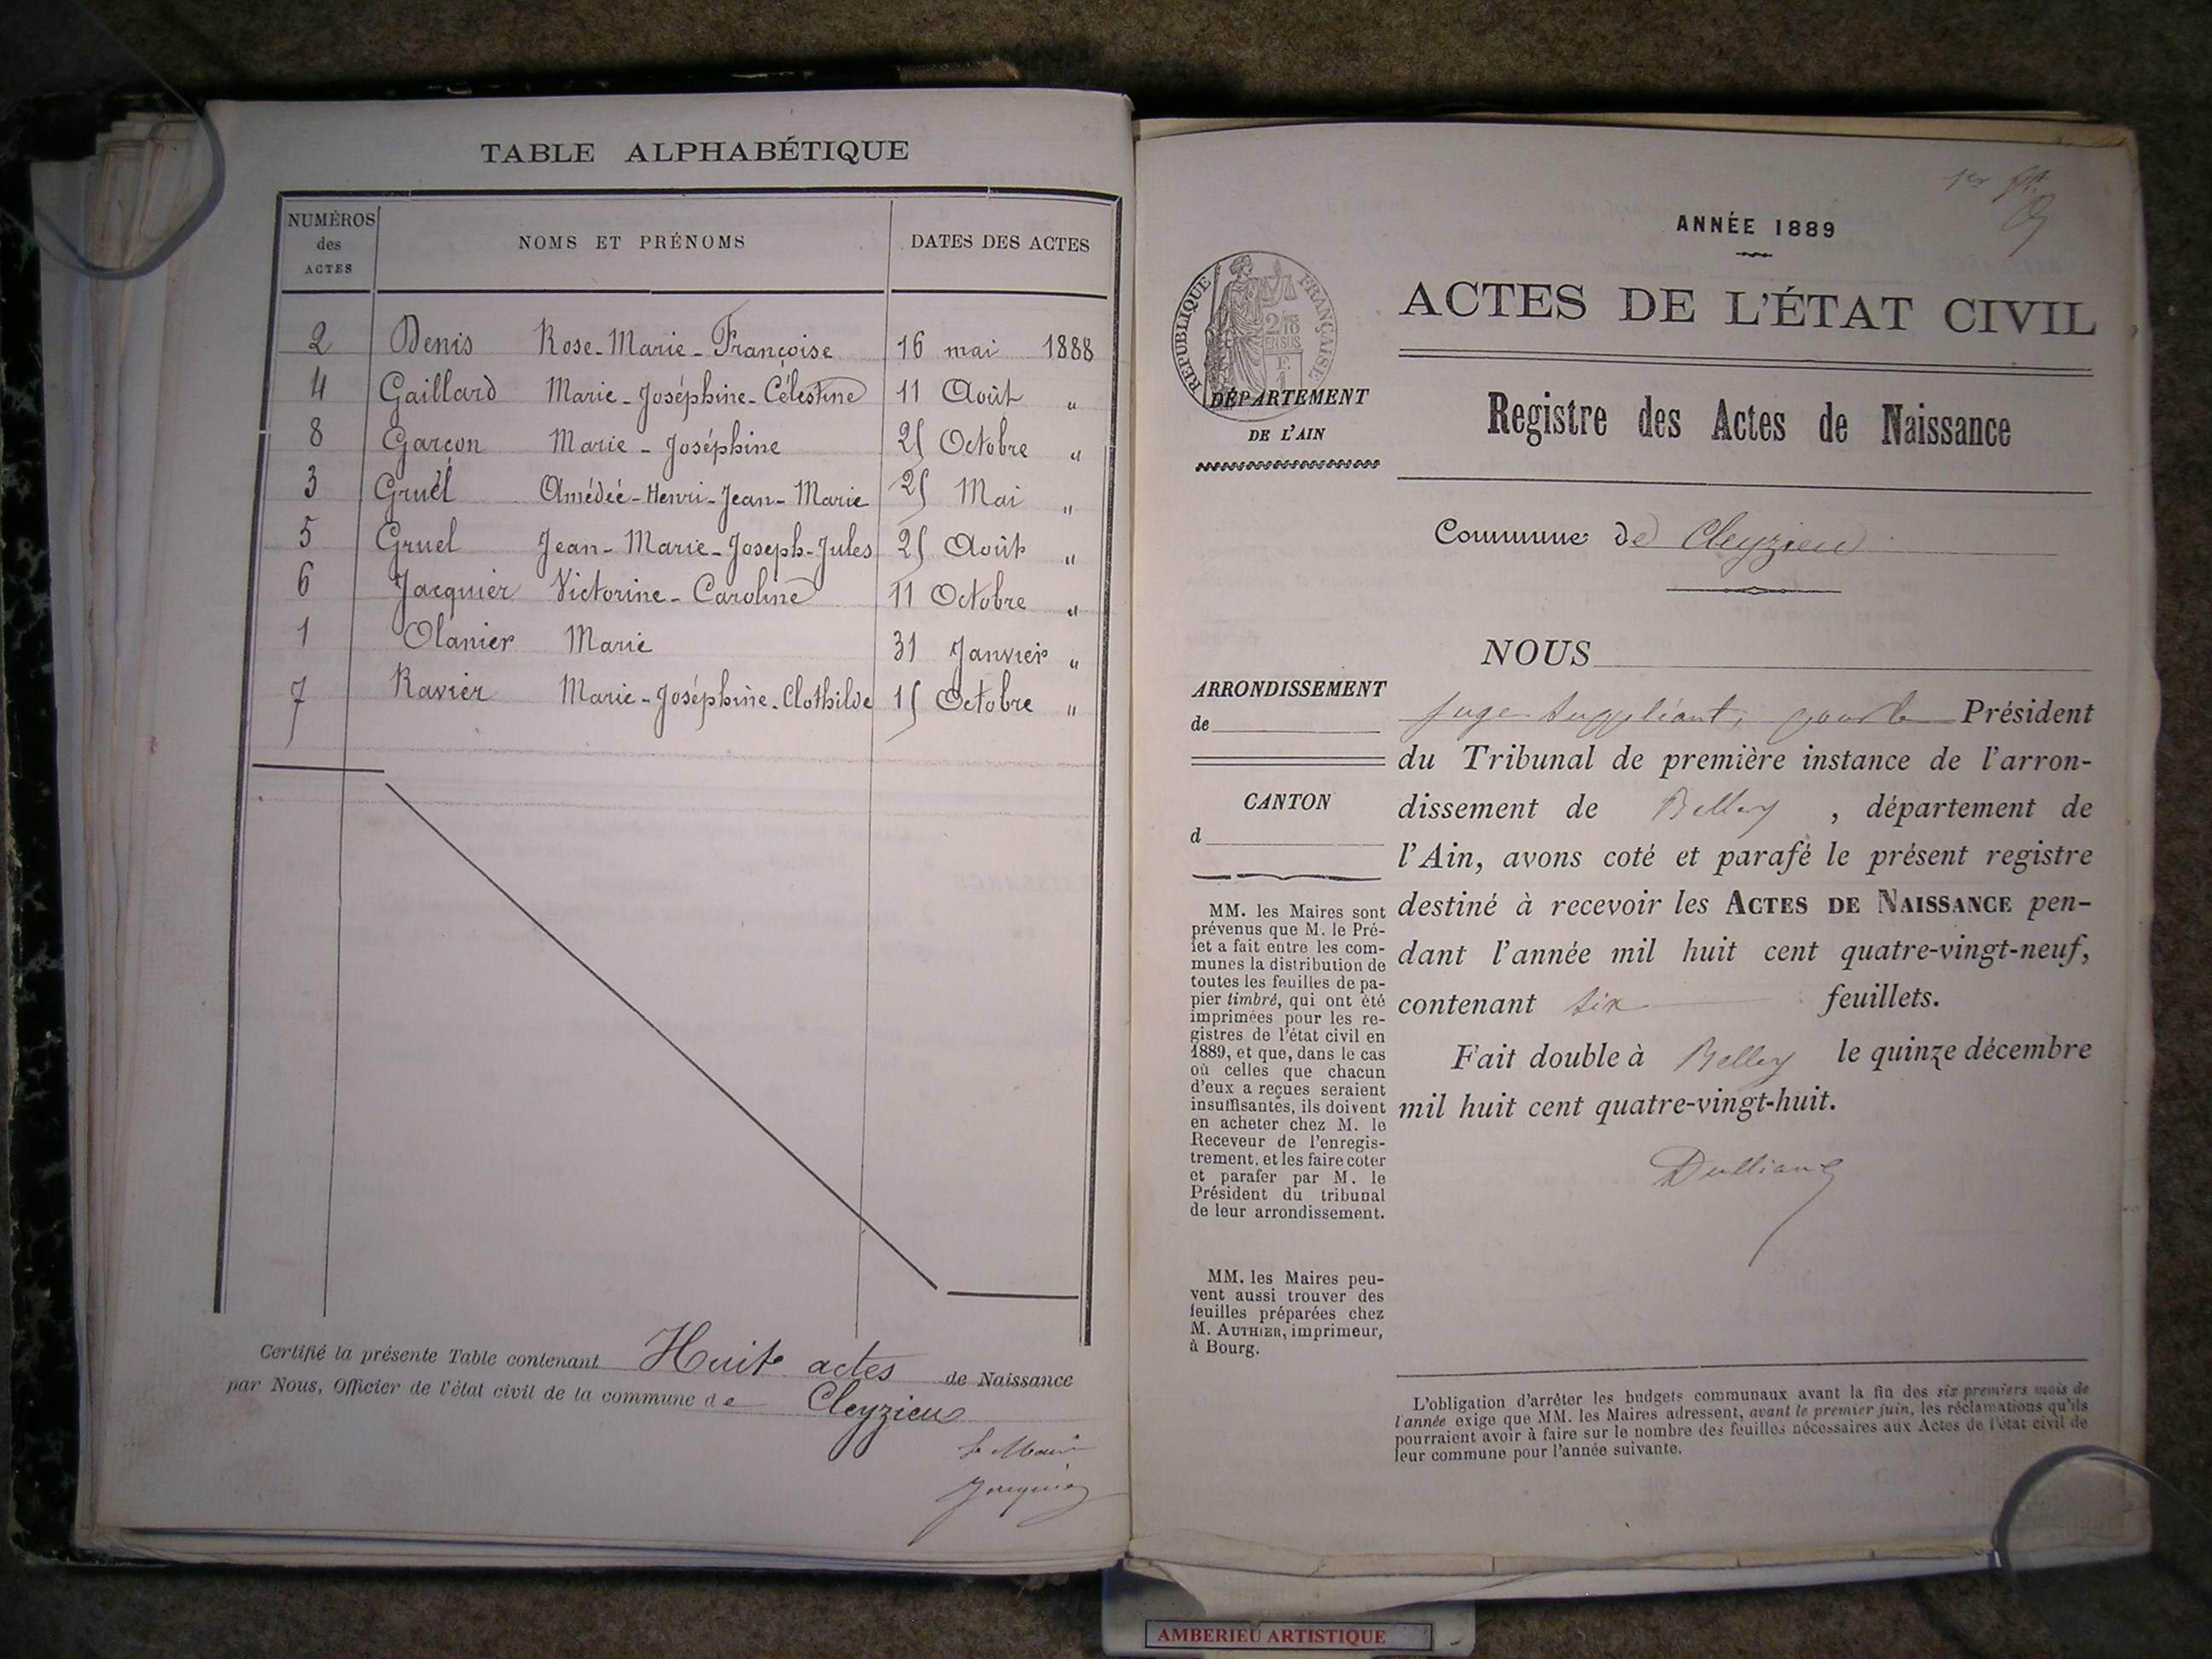 TABLE ALPHABÉTIQUE
NUMÉROS des ACTES
NOMS ET PRÉNOMS
DATES DES ACTES
2 Denis Rose-Marie-Françoise 16 mai 1888
4 Gaillard Marie-Joséphine-Célestine 11 Août "
8 Garçon Marie-Joséphine 25 Octobre "
3 Gruel Amédée-Henri-Jean-Marie 25 Mai "
5 Gruel Jean-Marie-Joseph-Jules 25 Août "
6 Jacquier Victorine-Caroline 11 Octobre "
1 Olanier Marie 31 Janvier "
7 Ravier Marie-Joséphine-Clothilde 15 Octobre "
Certifié la présente Table contenant Huit actes de Naissance
par Nous, Officier de l'état civil de la commune de Cleyzieu
Le Maire
Jacquier
1er
ANNÉE 1889
ACTES DE L'ÉTAT CIVIL
RÉPUBLIQUE FRANÇAISE
DÉPARTEMENT
DE L'AIN
Registre des Actes de Naissance
Commune de Cleyzieu
ARRONDISSEMENT
de
CANTON
d
MM. les Maires sont
prévenus que M. le Pré-
fet a fait entre les com-
munes la distribution de
toutes les feuilles de pa-
pier timbré, qui ont été
imprimées pour les re-
gistres de l'état civil en
1889, et que, dans le cas
où celles que chacun
d'eux a reçues seraient
insuffisantes, ils doivent
en acheter chez M. le
Receveur de l'enregis-
trement, et les faire coter
et parafer par M. le
Président du tribunal
de leur arrondissement.
MM. les Maires peu-
vent aussi trouver des
feuilles préparées chez
M. AUTHIER, imprimeur,
à Bourg.
NOUS
juge suppléant, pour le Président
du Tribunal de première instance de l'arron-
dissement de Belley, département de
l'Ain, avons coté et parafé le présent registre
destiné à recevoir les ACTES DE NAISSANCE pen-
dant l'année mil huit cent quatre-vingt-neuf,
contenant six feuillets.
Fait double à Belley le quinze décembre
mil huit cent quatre-vingt-huit.
L'obligation d'arrêter les budgets communaux avant la fin des six premiers mois de
l'année exige que MM. les Maires adressent, avant le premier juin, les réclamations qu'ils
pourraient avoir à faire sur le nombre des feuilles nécessaires aux Actes de l'état civil de
leur commune pour l'année suivante.
AMBERIEU ARTISTIQUE